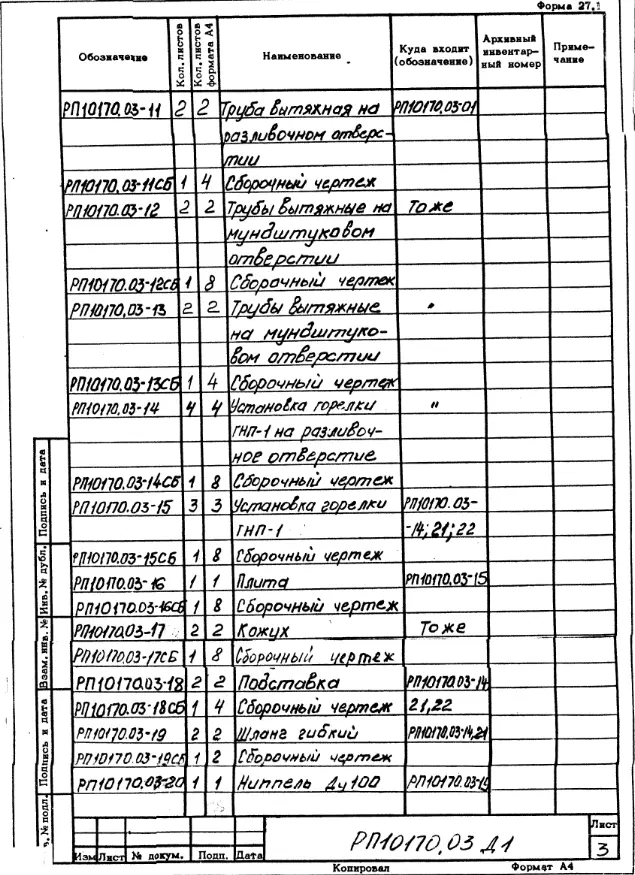 Форма 27,1
Обозначение Кол. листов Кол. листов формата А4 Наименование Куда входит (обозначение) Архивный инвентарный номер Примечание
РП10170.03-11 2 2 Труба вытяжная на РП10170.03-01
разливочном отверс-
тии
РП10170.03-11СБ 1 4 Сборочный чертеж
РП10170.03-12 2 2 Трубы вытяжные на То же
мундштуковом
отверстии
РП10170.03-12СБ 1 8 Сборочный чертеж
РП10170.03-13 2 2 Трубы вытяжные "
на мундштуко-
вом отверстии
РП10170.03-13СБ 1 4 Сборочный чертеж
РП10170.03-14 4 4 Установка горелки "
ГНП-1 на разливоч-
ное отверстие
РП10170.03-14СБ 1 8 Сборочный чертеж
РП10170.03-15 3 3 Установка горелки РП10170.03-
ГНП-1 -14; 21; 22
РП10170.03-15СБ 1 8 Сборочный чертеж
РП10170.03-16 1 1 Плита РП10170.03-15
РП10170.03-16СБ 1 8 Сборочный чертеж
РП10170.03-17 2 2 Кожух То же
РП10170.03-17СБ 1 8 Сборочный чертеж
РП10170.03-18 2 2 Подставка РП10170.03-14
РП10170.03-18СБ 1 4 Сборочный чертеж 21,22
РП10170.03-19 2 2 Шланг гибкий РП10170.03-14,21
РП10170.03-19СБ 1 2 Сборочный чертеж
РП10170.03-20 1 1 Ниппель Ду100 РП10170.03-19
Подпись и дата
Инв. № дубл.
Взам. инв. №
Подпись и дата
. № подл.
Изм Лист № докум. Подп. Дата
РП10170.03 Д1
Лист
3
Копировал Формат А4